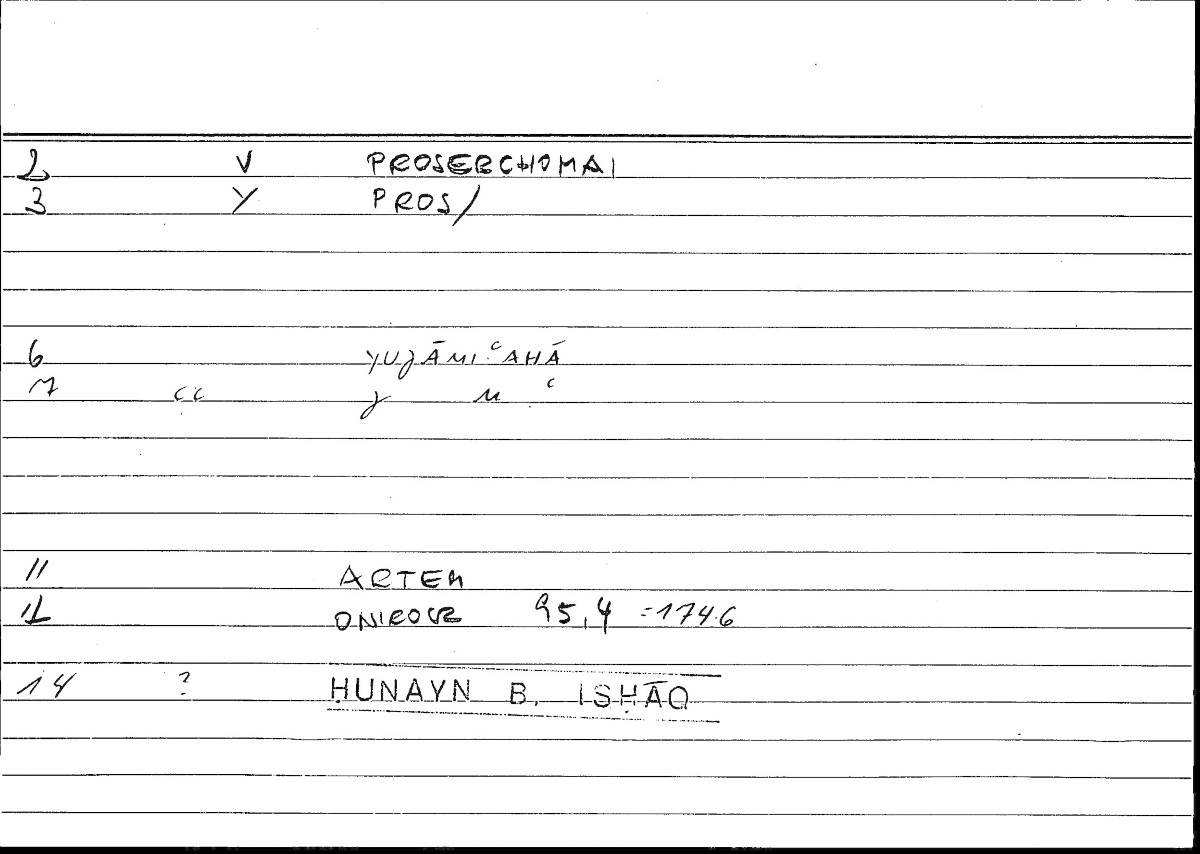 2 V PROSERCHOMAI
3 Y PROS/
6 YUJĀMIʿAHĀ
7 cc J M ʿ
11 ARTEM
12 ONIROCR 95,4 =174.6
14 ? ḤUNAYN B. ISḤĀQ